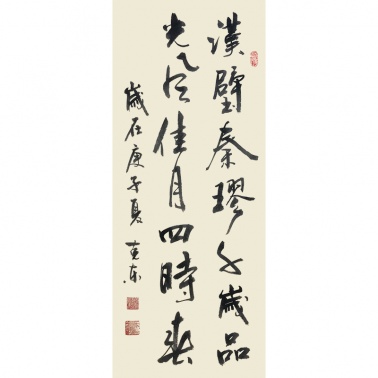 漢璧秦璆千歲品
光風佳月四時春
歲在庚子夏